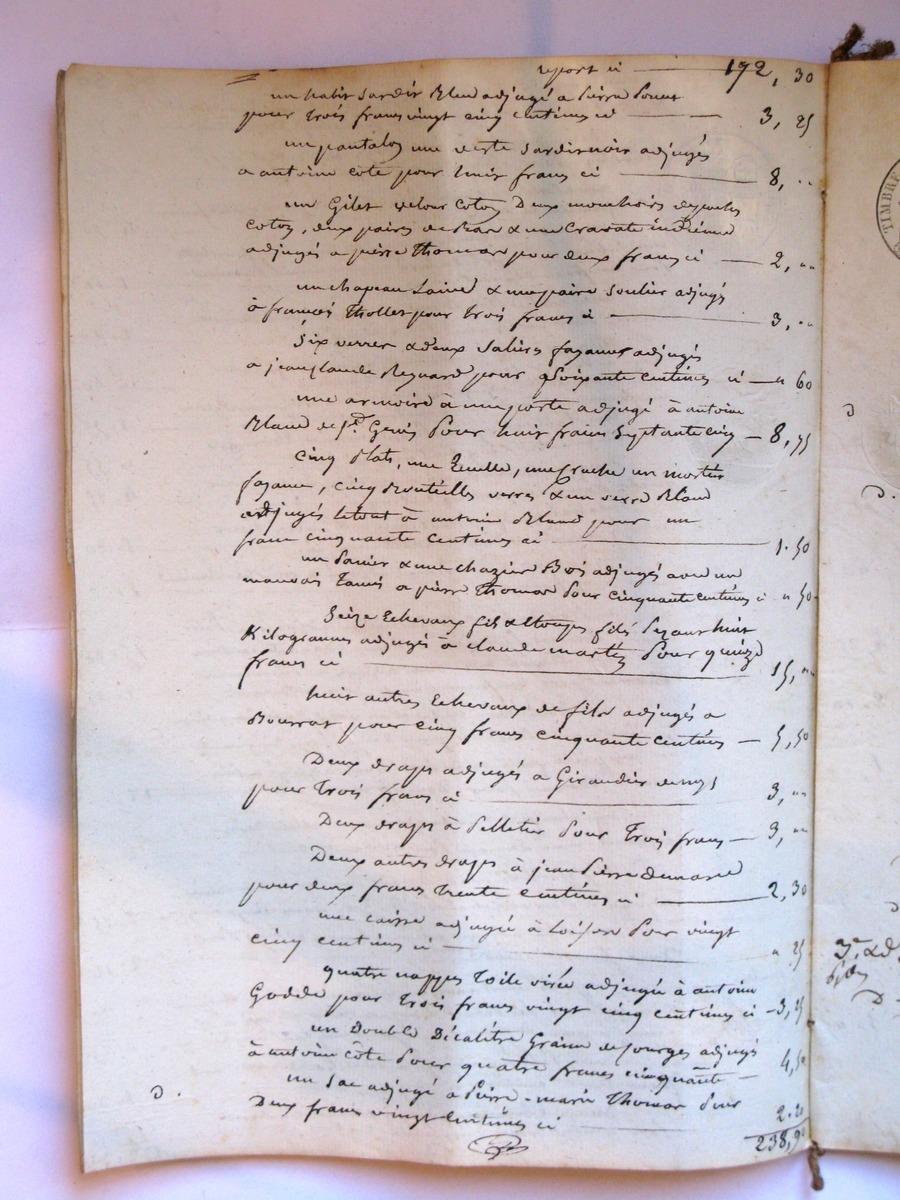 report ci — 172, 30
un habit sardis Bleu adjugé a pierre
pour trois francs vingt cinq centimes ci — 3, 25
un pantalon une veste sardis noir adjugés
a antoine cote pour huit francs ci — 8, "
un Gilet velour coton Deux mouchoirs de poches
coton, deux paires de bas & une Cravate indienne
adjugés a pierre Thomas pour deux francs ci — 2, "
un chapeau Laine & une paire soulier adjugés
à francois Thollet pour trois francs ci — 3, "
six verres & deux salières fayance adjugés
a jean claude Reynard pour soixante centimes ci — " 60
une armoire à une porte adjugé à antoine
Bland de st. Genis pour huit francs septante cinq — 8, 75
cinq plats, une Ecuelle, une cruche un mortier
fayance, cinq Bouteilles verres & un verre Blanc
adjugés le tout à antoine Bland pour un
franc cinquante centimes ci — 1. 50
un panier & une chazière Bois adjugés avec un
mauvais Tamis a pierre Thomas pour cinquante centimes ci " 50
seize Echevaux fils & étoupes filés pezant huit
Kilogrammes adjugés à claude martin pour quinze
francs ci — 15, "
huit autres Echevaux de fils adjugés a
Bourrat pour cinq francs cinquante centimes — 5, 50
Deux draps adjugés a Giraudier
pour trois francs ci — 3, "
Deux draps à Pelletier pour trois francs — 3, "
Deux autres draps à jean pierre
pour deux francs trente centimes ci — 2, 30
une caisse adjugée à Loison pour vingt
cinq centimes ci — " 25
quatre nappes toile adjugée à antoine
Godde pour trois francs vingt cinq centimes ci — 3, 25
un Double Décalitre Graine de courges adjugés
à antoine côte pour quatre francs cinquante — 4, 50
un sac adjugé a Pierre-marie Thomas pour
Deux francs vingt centimes ci — 2. 20
238, 90
D.
TIMBRE